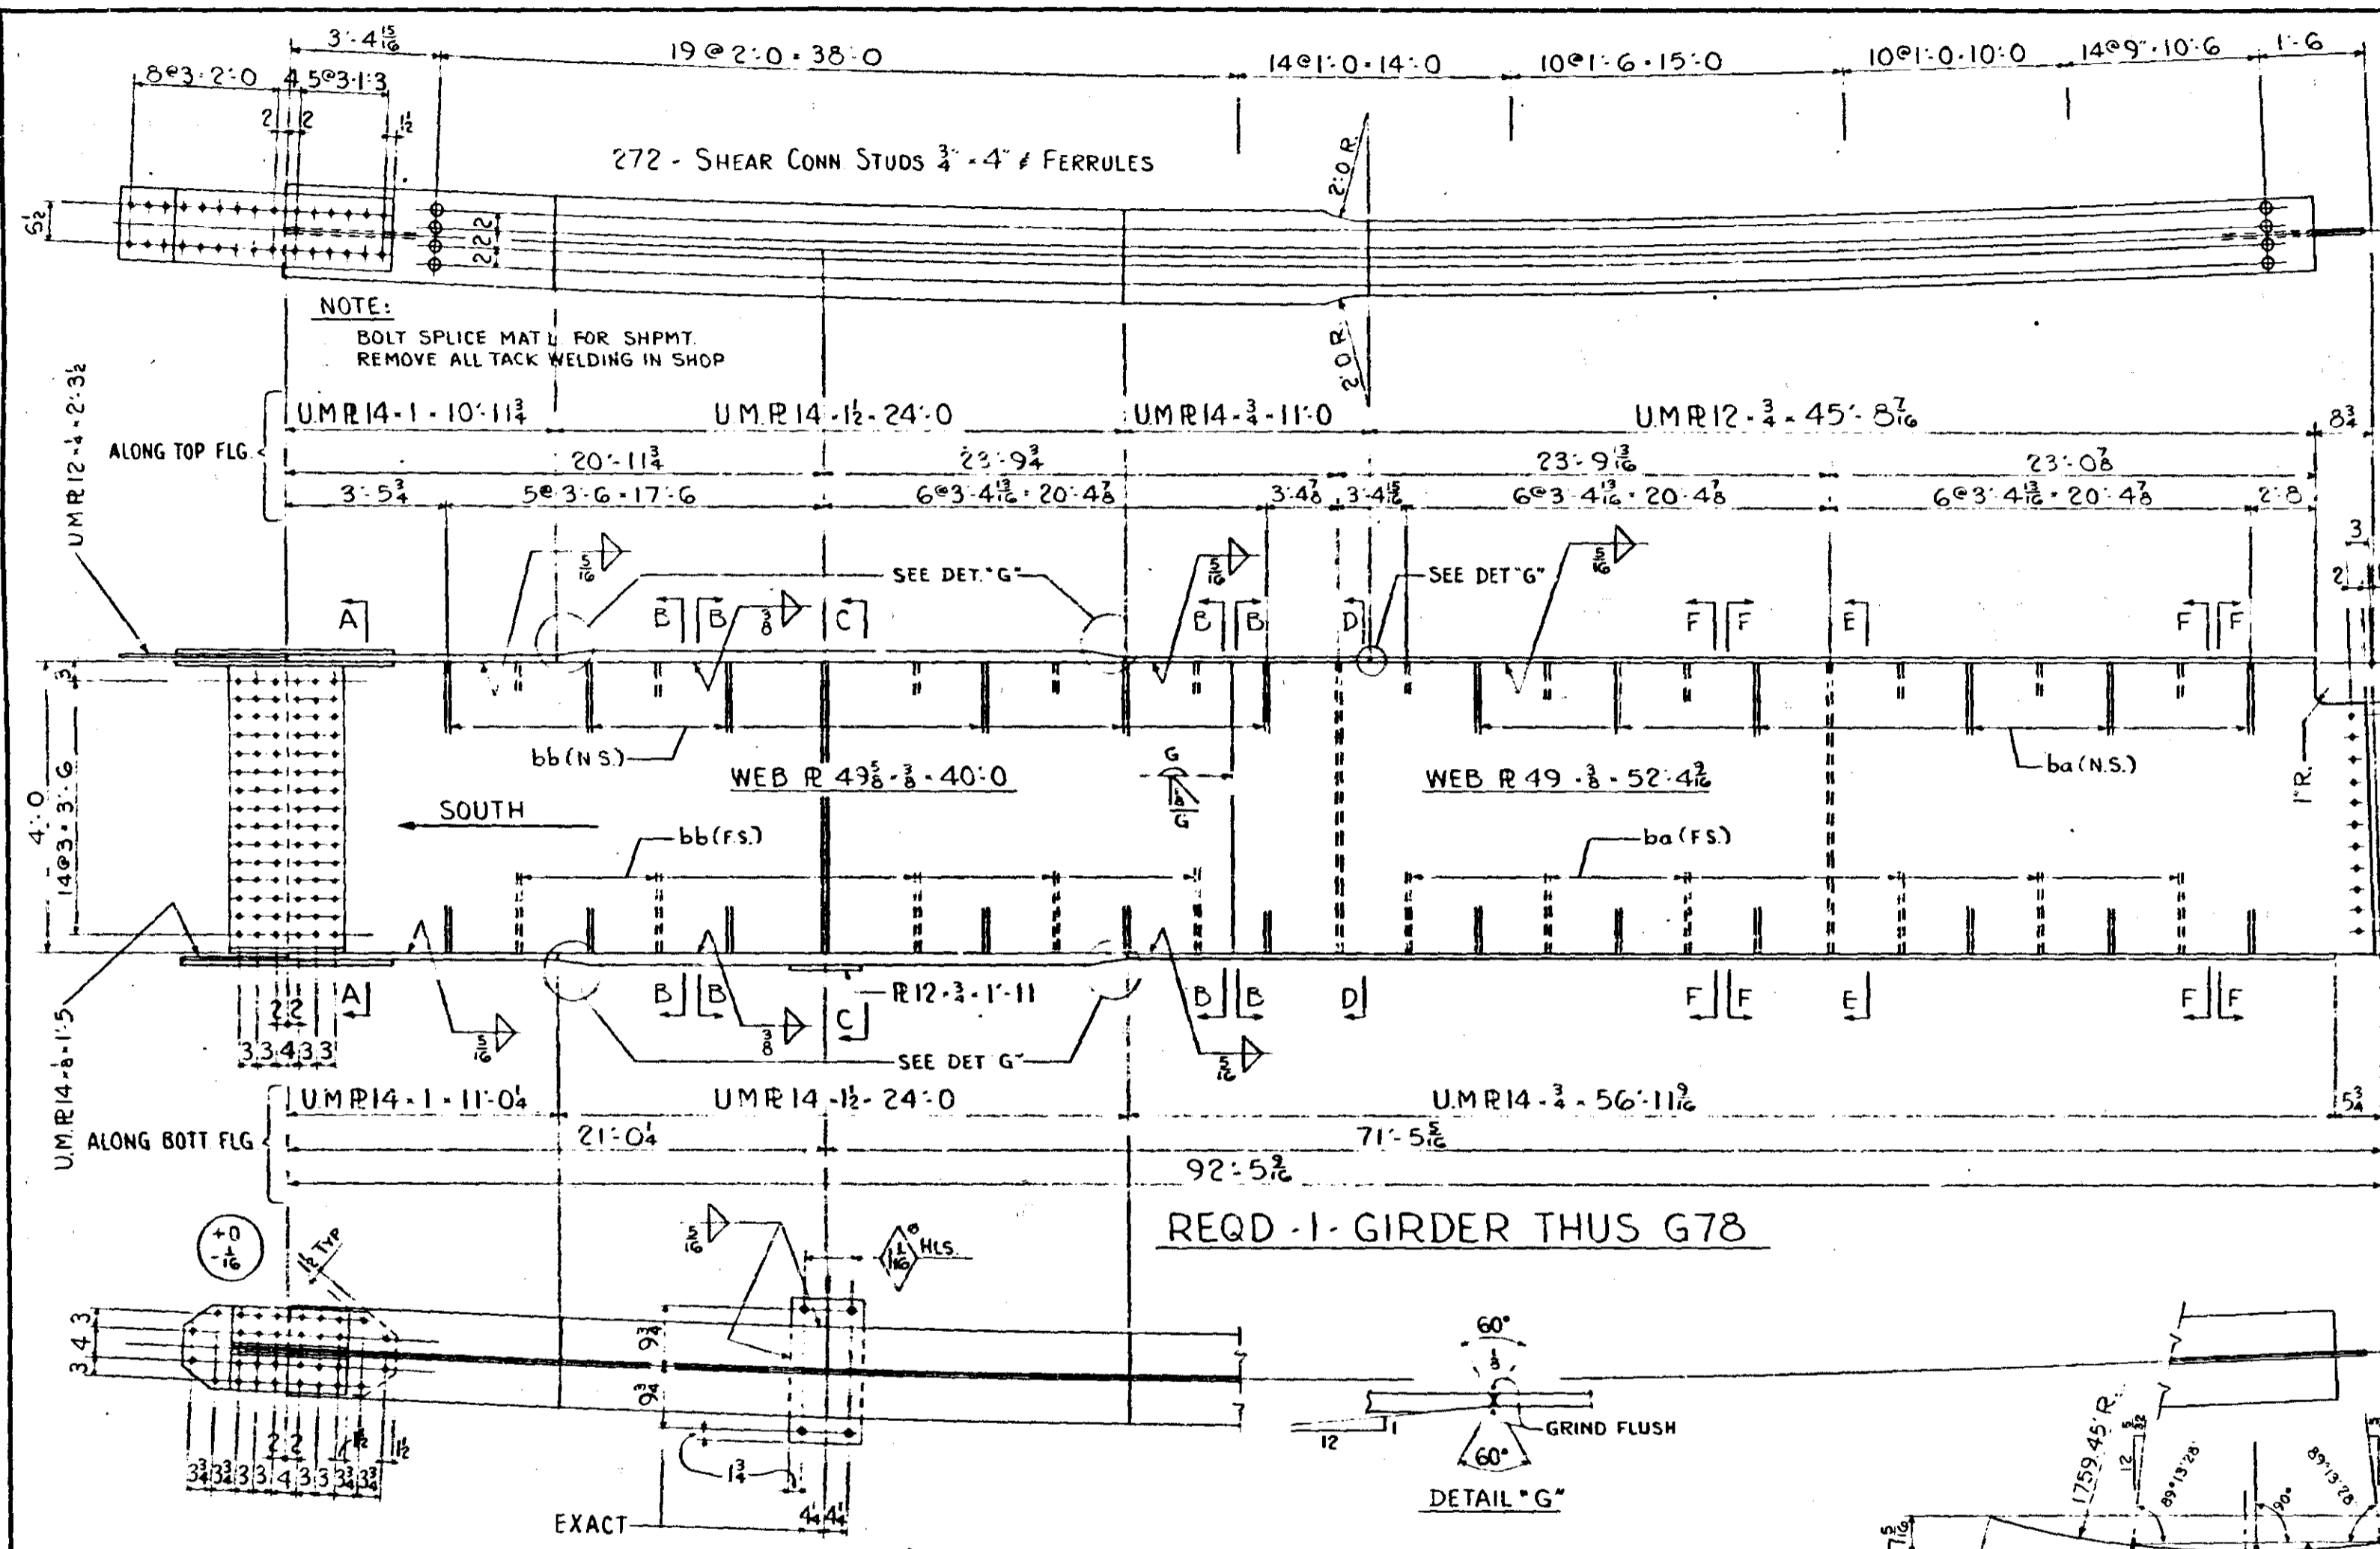 3'-4 15/16
19 @ 2'-0 = 38'-0
14@1'-0=14'-0
10@1'-6=15'-0
10@1'-0=10'-0
14@9"=10'-6
1'-6
8@3=2'-0
4
5@3=1'-3
2
2
1 1/2
272 - SHEAR CONN STUDS 3/4" × 4" & FERRULES
2'-0 R.
5 1/2
2 2 2
NOTE:
BOLT SPLICE MAT'L FOR SHPMT.
REMOVE ALL TACK WELDING IN SHOP
2'-0 R.
UM PL 12 × 1/4 × 2'-3 1/2
ALONG TOP FLG.
U.M PL 14 × 1 × 10'-11 3/4
U.M. PL 14 × 1 1/2 × 24'-0
U.M PL 14 × 3/4 × 11'-0
U.M PL 12 × 3/4 × 45'-8 7/16
8 3/4
20'-11 3/4
23'-9 3/4
23'-9 13/16
23'-0 7/8
3'-5 3/4
5@3'-6=17'-6
6@3'-4 13/16=20'-4 7/8
3'-4 7/8
3'-4 15/16
6@3'-4 13/16=20'-4 7/8
6@3'-4 13/16=20'-4 7/8
2'-8
3
2
5/16
SEE DET. "G"
5/16
SEE DET "G"
5/16
A
B B
3/8
C
B B
D
F F
E
F F
3
bb (N.S.)
WEB PL 49 5/8 × 3/8 × 40'-0
G
G
WEB PL 49 × 3/8 × 52'-4 9/16
ba (N.S.)
1" R.
4'-0
14@3=3'-6
SOUTH
bb (F.S.)
ba (F.S.)
U.M. PL 14 × 1/8 × 1'-5
A
B B
PL 12 × 3/4 × 1'-11
C
B B
D
F F
E
F F
2 2
3 3 4 3 3
5/16
3/8
SEE DET G"
5/16
ALONG BOTT FLG
U.M PL 14 × 1 × 11'-0 1/4
U M PL 14 × 1 1/2 × 24'-0
U.M PL 14 × 3/4 × 56'-11 9/16
5 3/4
21'-0 1/4
71'-5 5/16
92'-5 9/16
REQD - 1 - GIRDER THUS G78
+0
-1/16
1 1/2 TYP
5/16
8
1 1/16
HLS.
3 4 3
9 3/4
9 3/4
60°
1/8
GRIND FLUSH
12
1
60°
DETAIL "G"
2 2
1 1/2
1 1/2
3 3/4 3 3/4 3 3 4 3 3 3 3/4 3 3/4
1 3/4
4 1/4 4 1/4
EXACT
1759.45' R.
5/32
12
89°13'28"
90°
89°13'28"